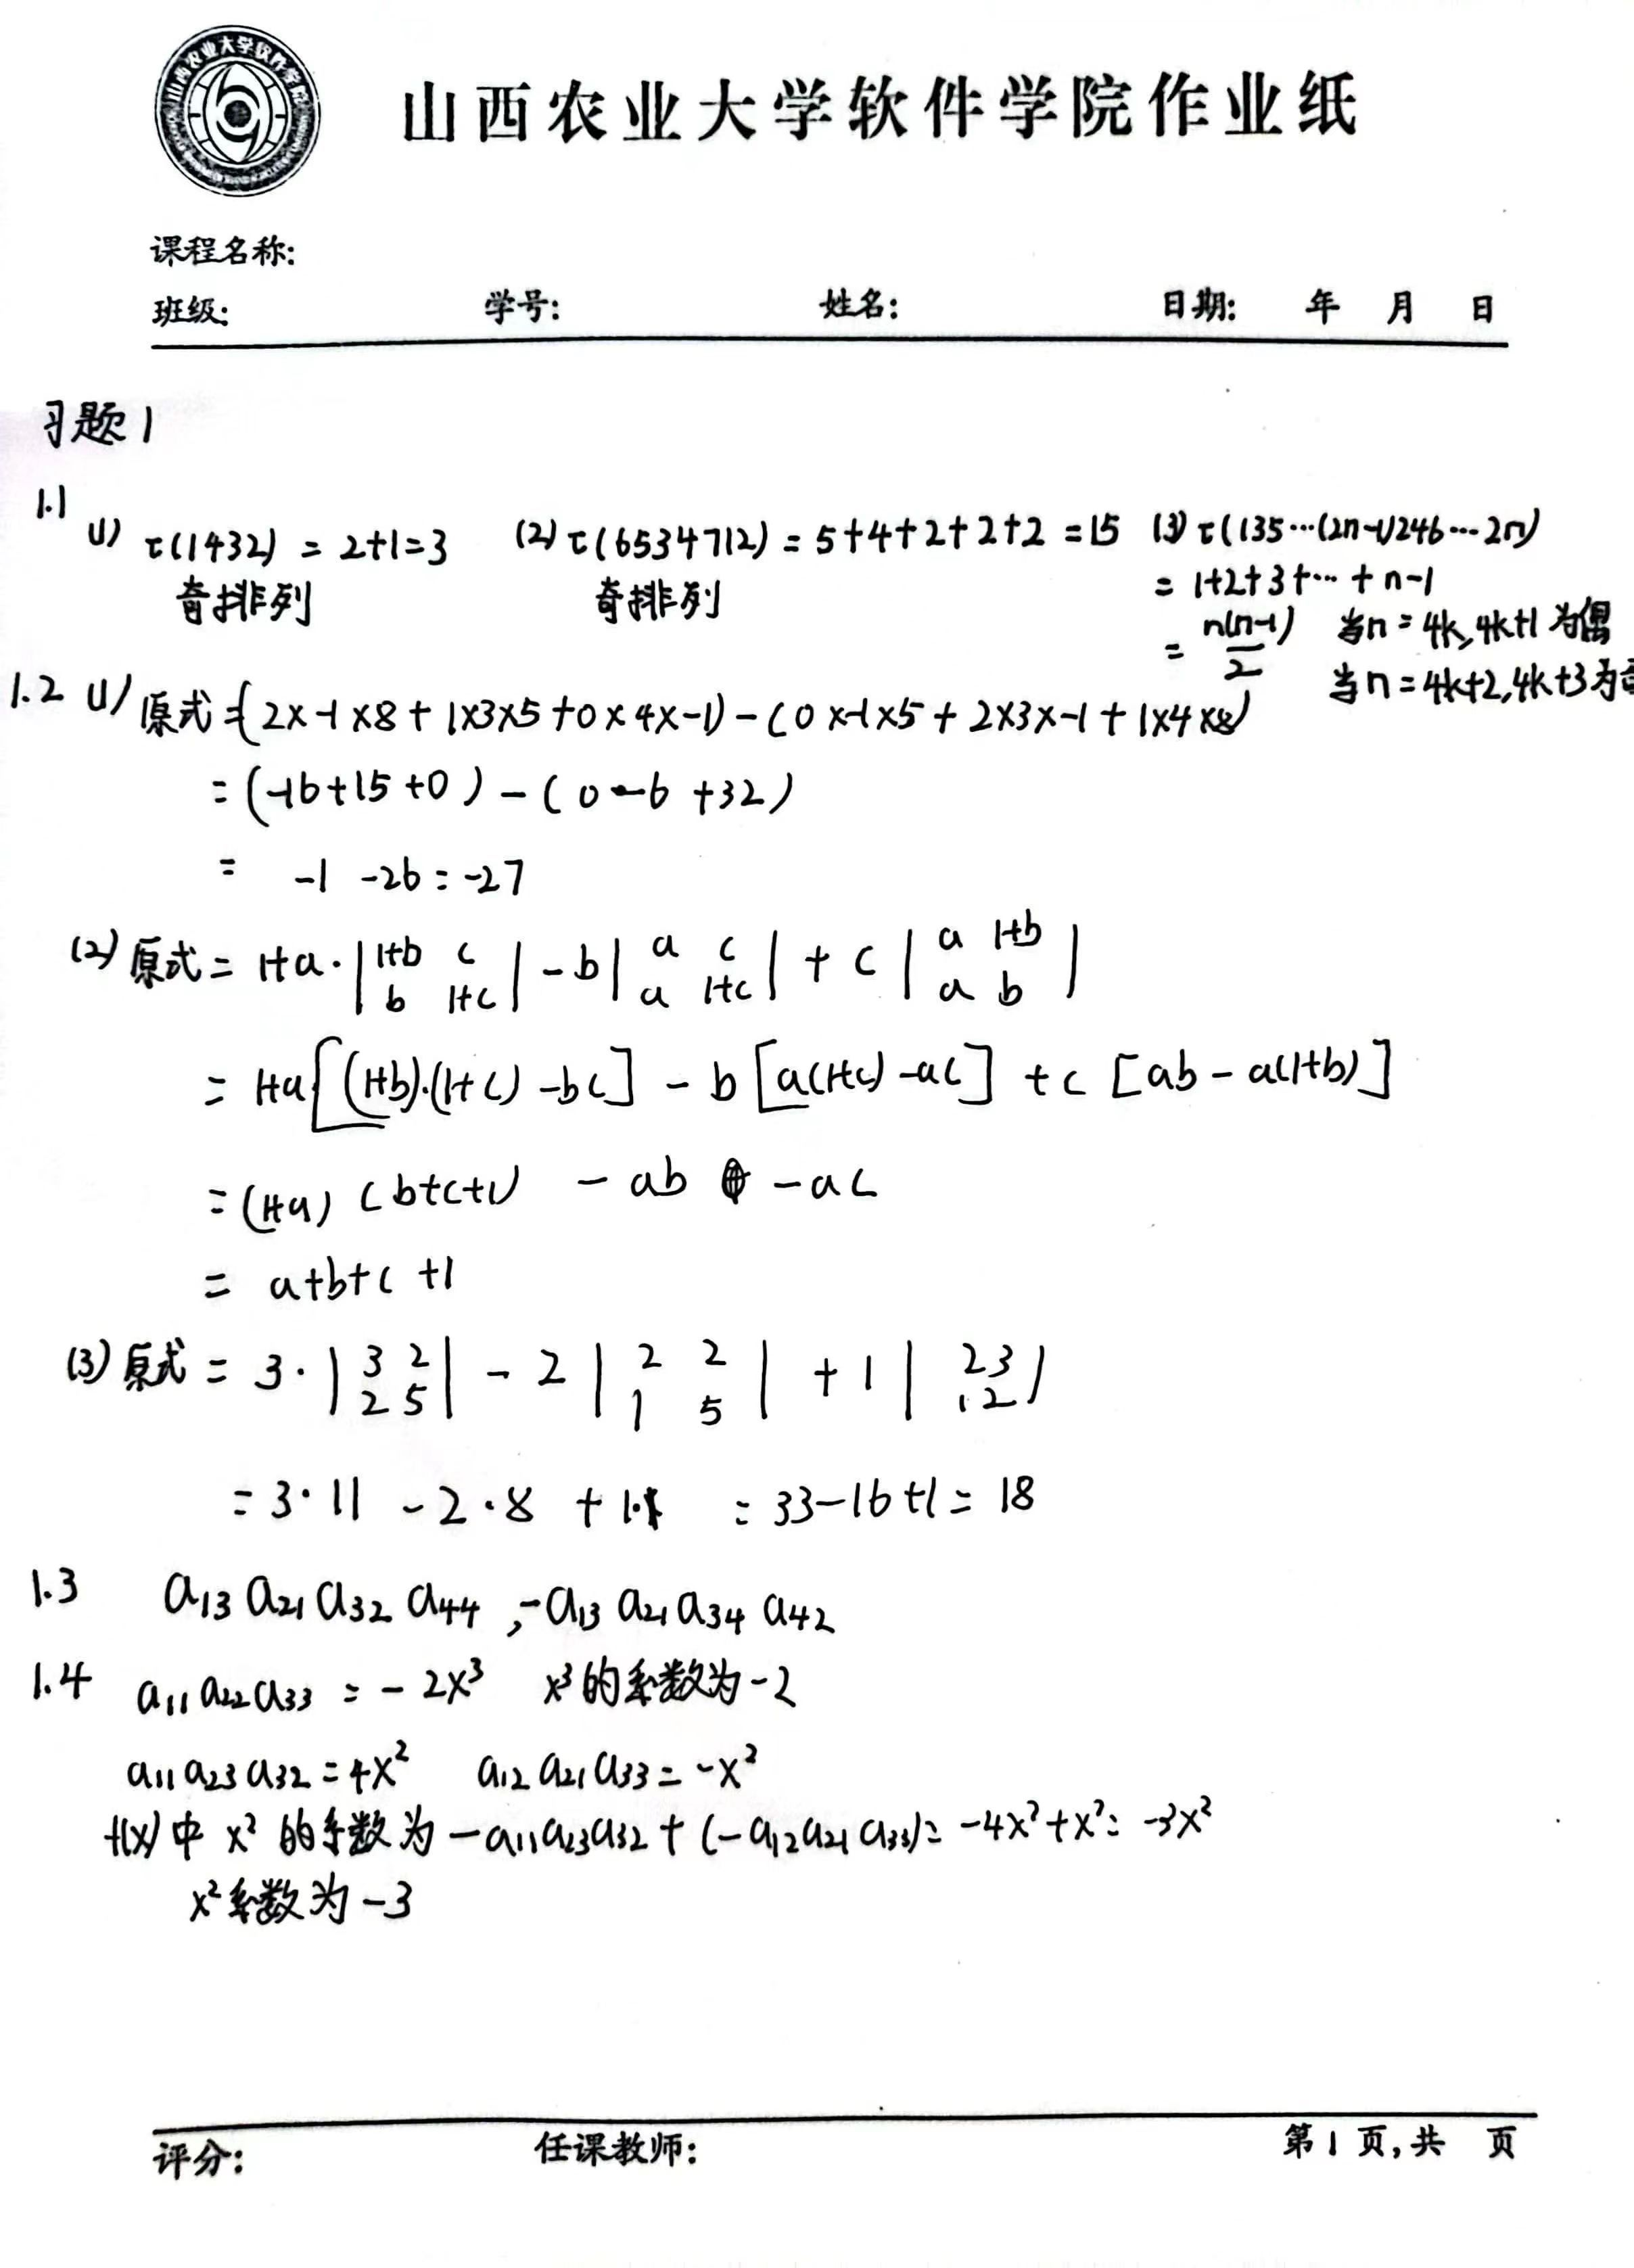 山西农业大学软件学院
山西农业大学软件学院作业纸
课程名称:
班级: 学号: 姓名: 日期: 年 月 日
习题1
1.1 (1) τ(1432) = 2+1=3 (2) τ(6534712) = 5+4+2+2+2 =15 (3) τ(135…(2n-1)246…2n)
奇排列 奇排列 = 1+2+3+…+n-1
= n(n-1)/2 当n = 4k,4k+1 为偶
当n = 4k+2,4k+3为奇
1.2 (1) 原式=(2×-1×8 + 1×3×5+0×4×-1) - (0×-1×5 + 2×3×-1 + 1×4×8)
= (-16+15+0) - (0-6+32)
= -1 -26 = -27
(2) 原式 = 1+a · | 1+b c ; b 1+c | - b | a c ; a 1+c | + c | a 1+b ; a b |
= 1+a[(1+b)·(1+c) -bc] - b [a(1+c) -ac] + c [ab - a(1+b)]
= (1+a) (b+c+1) - ab - ac
= a+b+c+1
(3) 原式 = 3 · | 3 2 ; 2 5 | - 2 | 2 2 ; 1 5 | + 1 | 2 3 ; 1 2 |
= 3·11 - 2·8 + 1·1 = 33-16+1 = 18
1.3 a13 a21 a32 a44 , -a13 a21 a34 a42
1.4 a11 a22 a33 = -2x³ x³的系数为-2
a11 a23 a32 = 4x² a12 a21 a33 = -x²
f(x)中 x² 的系数为 -a11a23a32 + (-a12a21a33) = -4x²+x² = -3x²
x²系数为-3
评分: 任课教师: 第1页,共 页